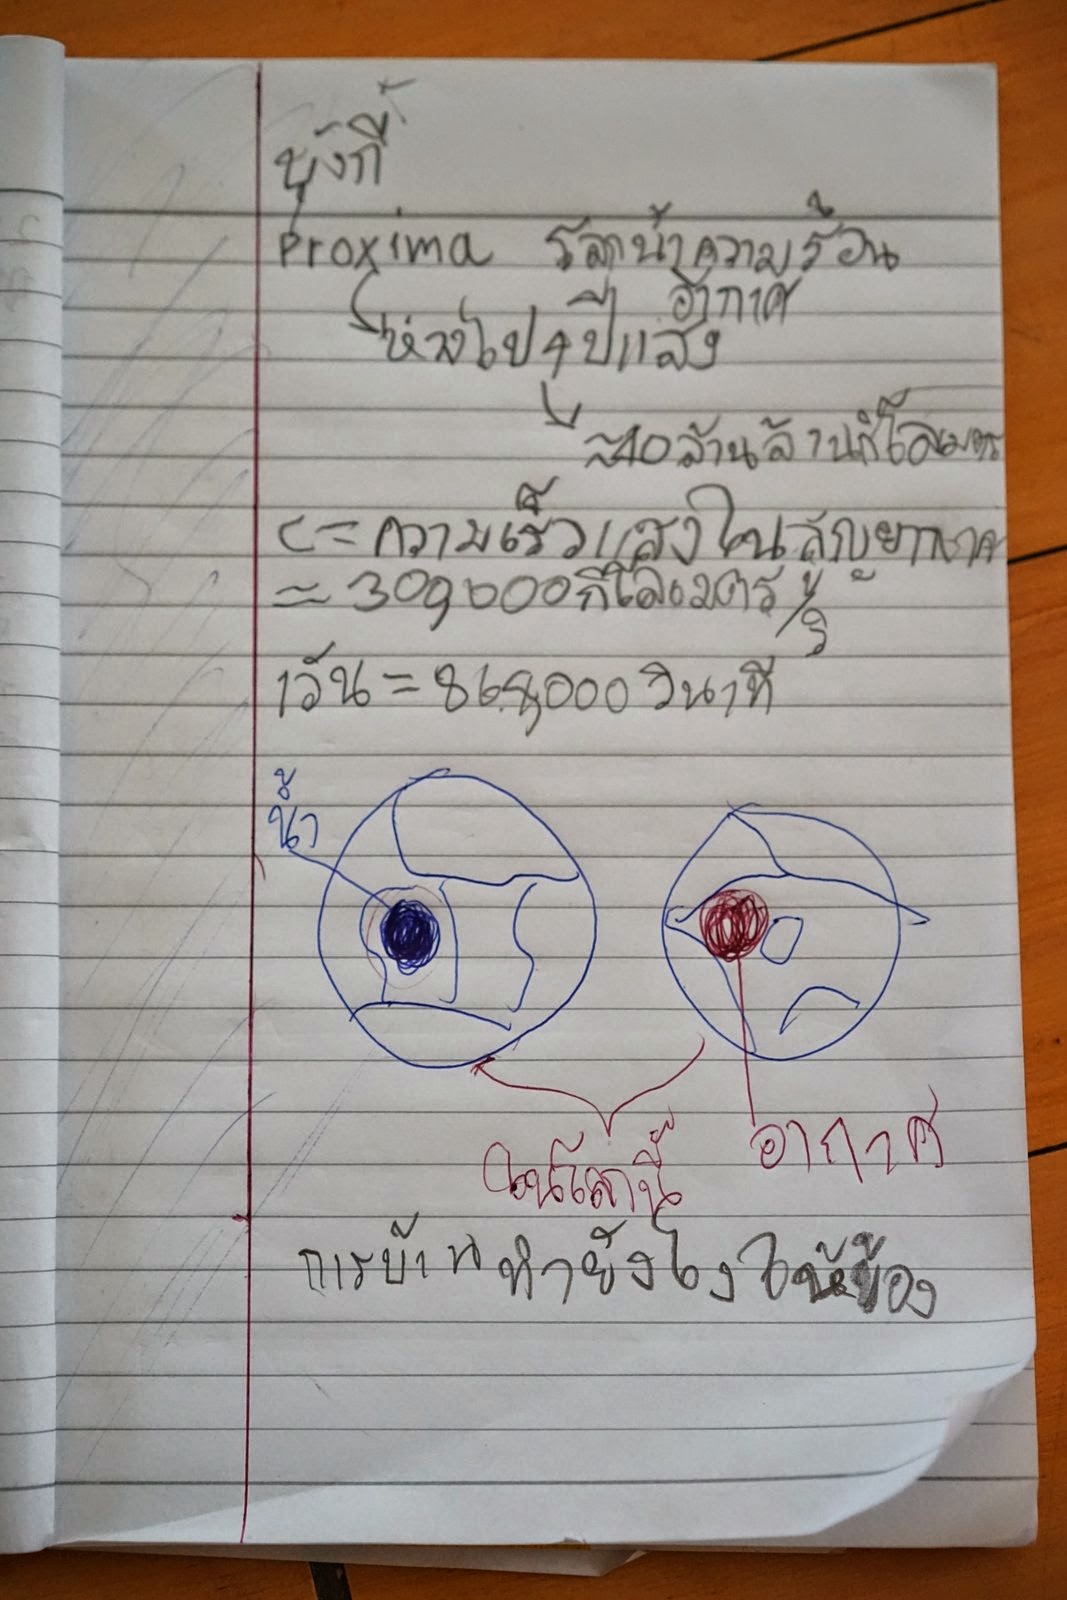 บุ้งกี๋
Proxima โลก น้ำ ความร้อน
อากาศ
ห่างไป 4 ปีแสง
≈40 ล้านล้านกิโลเมตร
c = ความเร็วแสงในสุญญากาศ
≈ 300000 กิโลเมตร/วิ
1 วัน = วินาที
น้ำ
ในโลกนี้
อากาศ
การบ้าน ทำยังไงให้